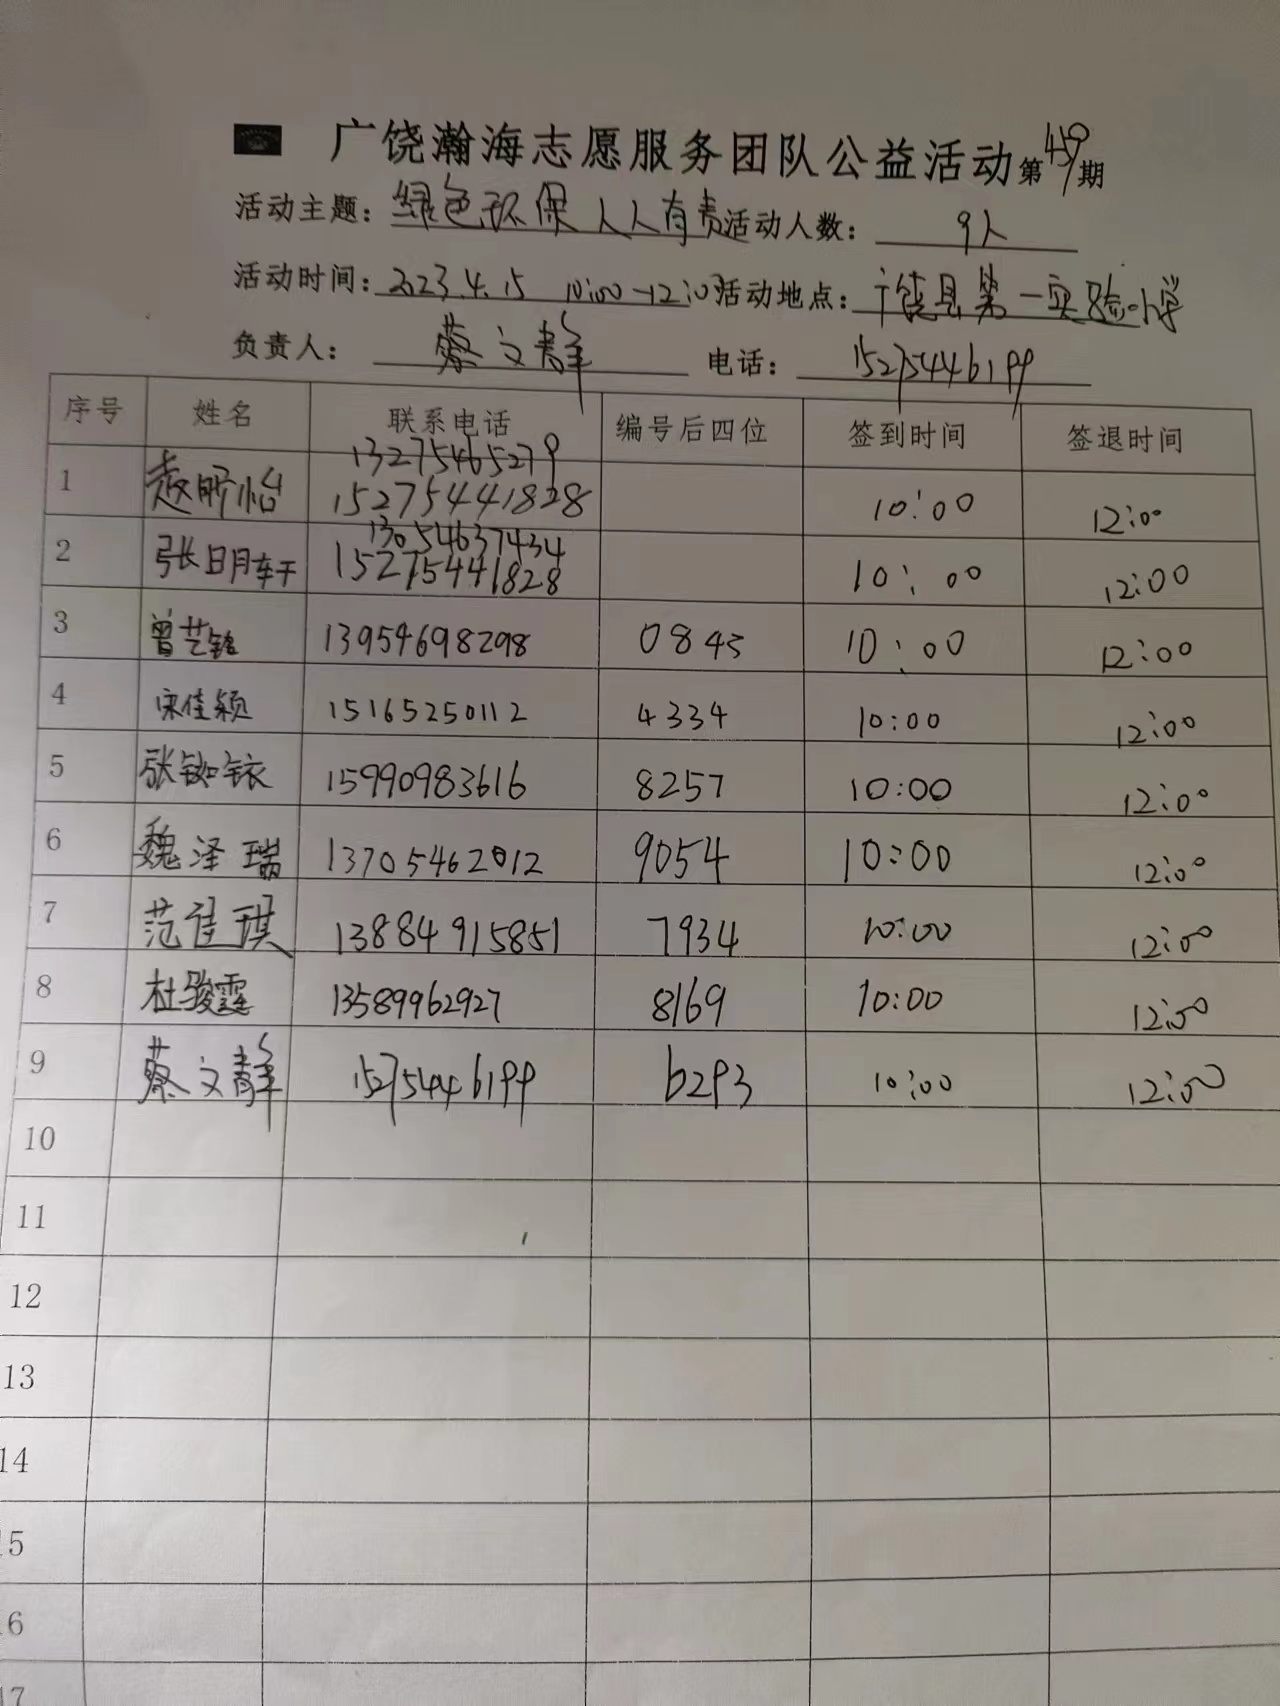 广饶瀚海志愿服务团队公益活动第459期
活动主题：绿色环保人人有责 活动人数：9人
活动时间：2023.4.15 10:00-12:00 活动地点：广饶县第一实验小学
负责人：蔡文静 电话：15275446199
序号 姓名 联系电话 编号后四位 签到时间 签退时间
13275465279
1 赵昕怡 15275441828 10:00 12:00
13054637434
2 张日月轩 15275441828 10:00 12:00
3 曾艺铭 13954698298 0843 10:00 12:00
4 宋佳颖 15165250112 4334 10:00 12:00
5 张铷铱 15990983616 8257 10:00 12:00
6 魏泽瑞 13705462012 9054 10:00 12:00
7 范佳琪 13884915851 7934 10:00 12:00
8 杜骏霆 13589962927 8169 10:00 12:00
9 蔡文静 15275446199 6293 10:00 12:00
10
11
12
13
14
15
16
17